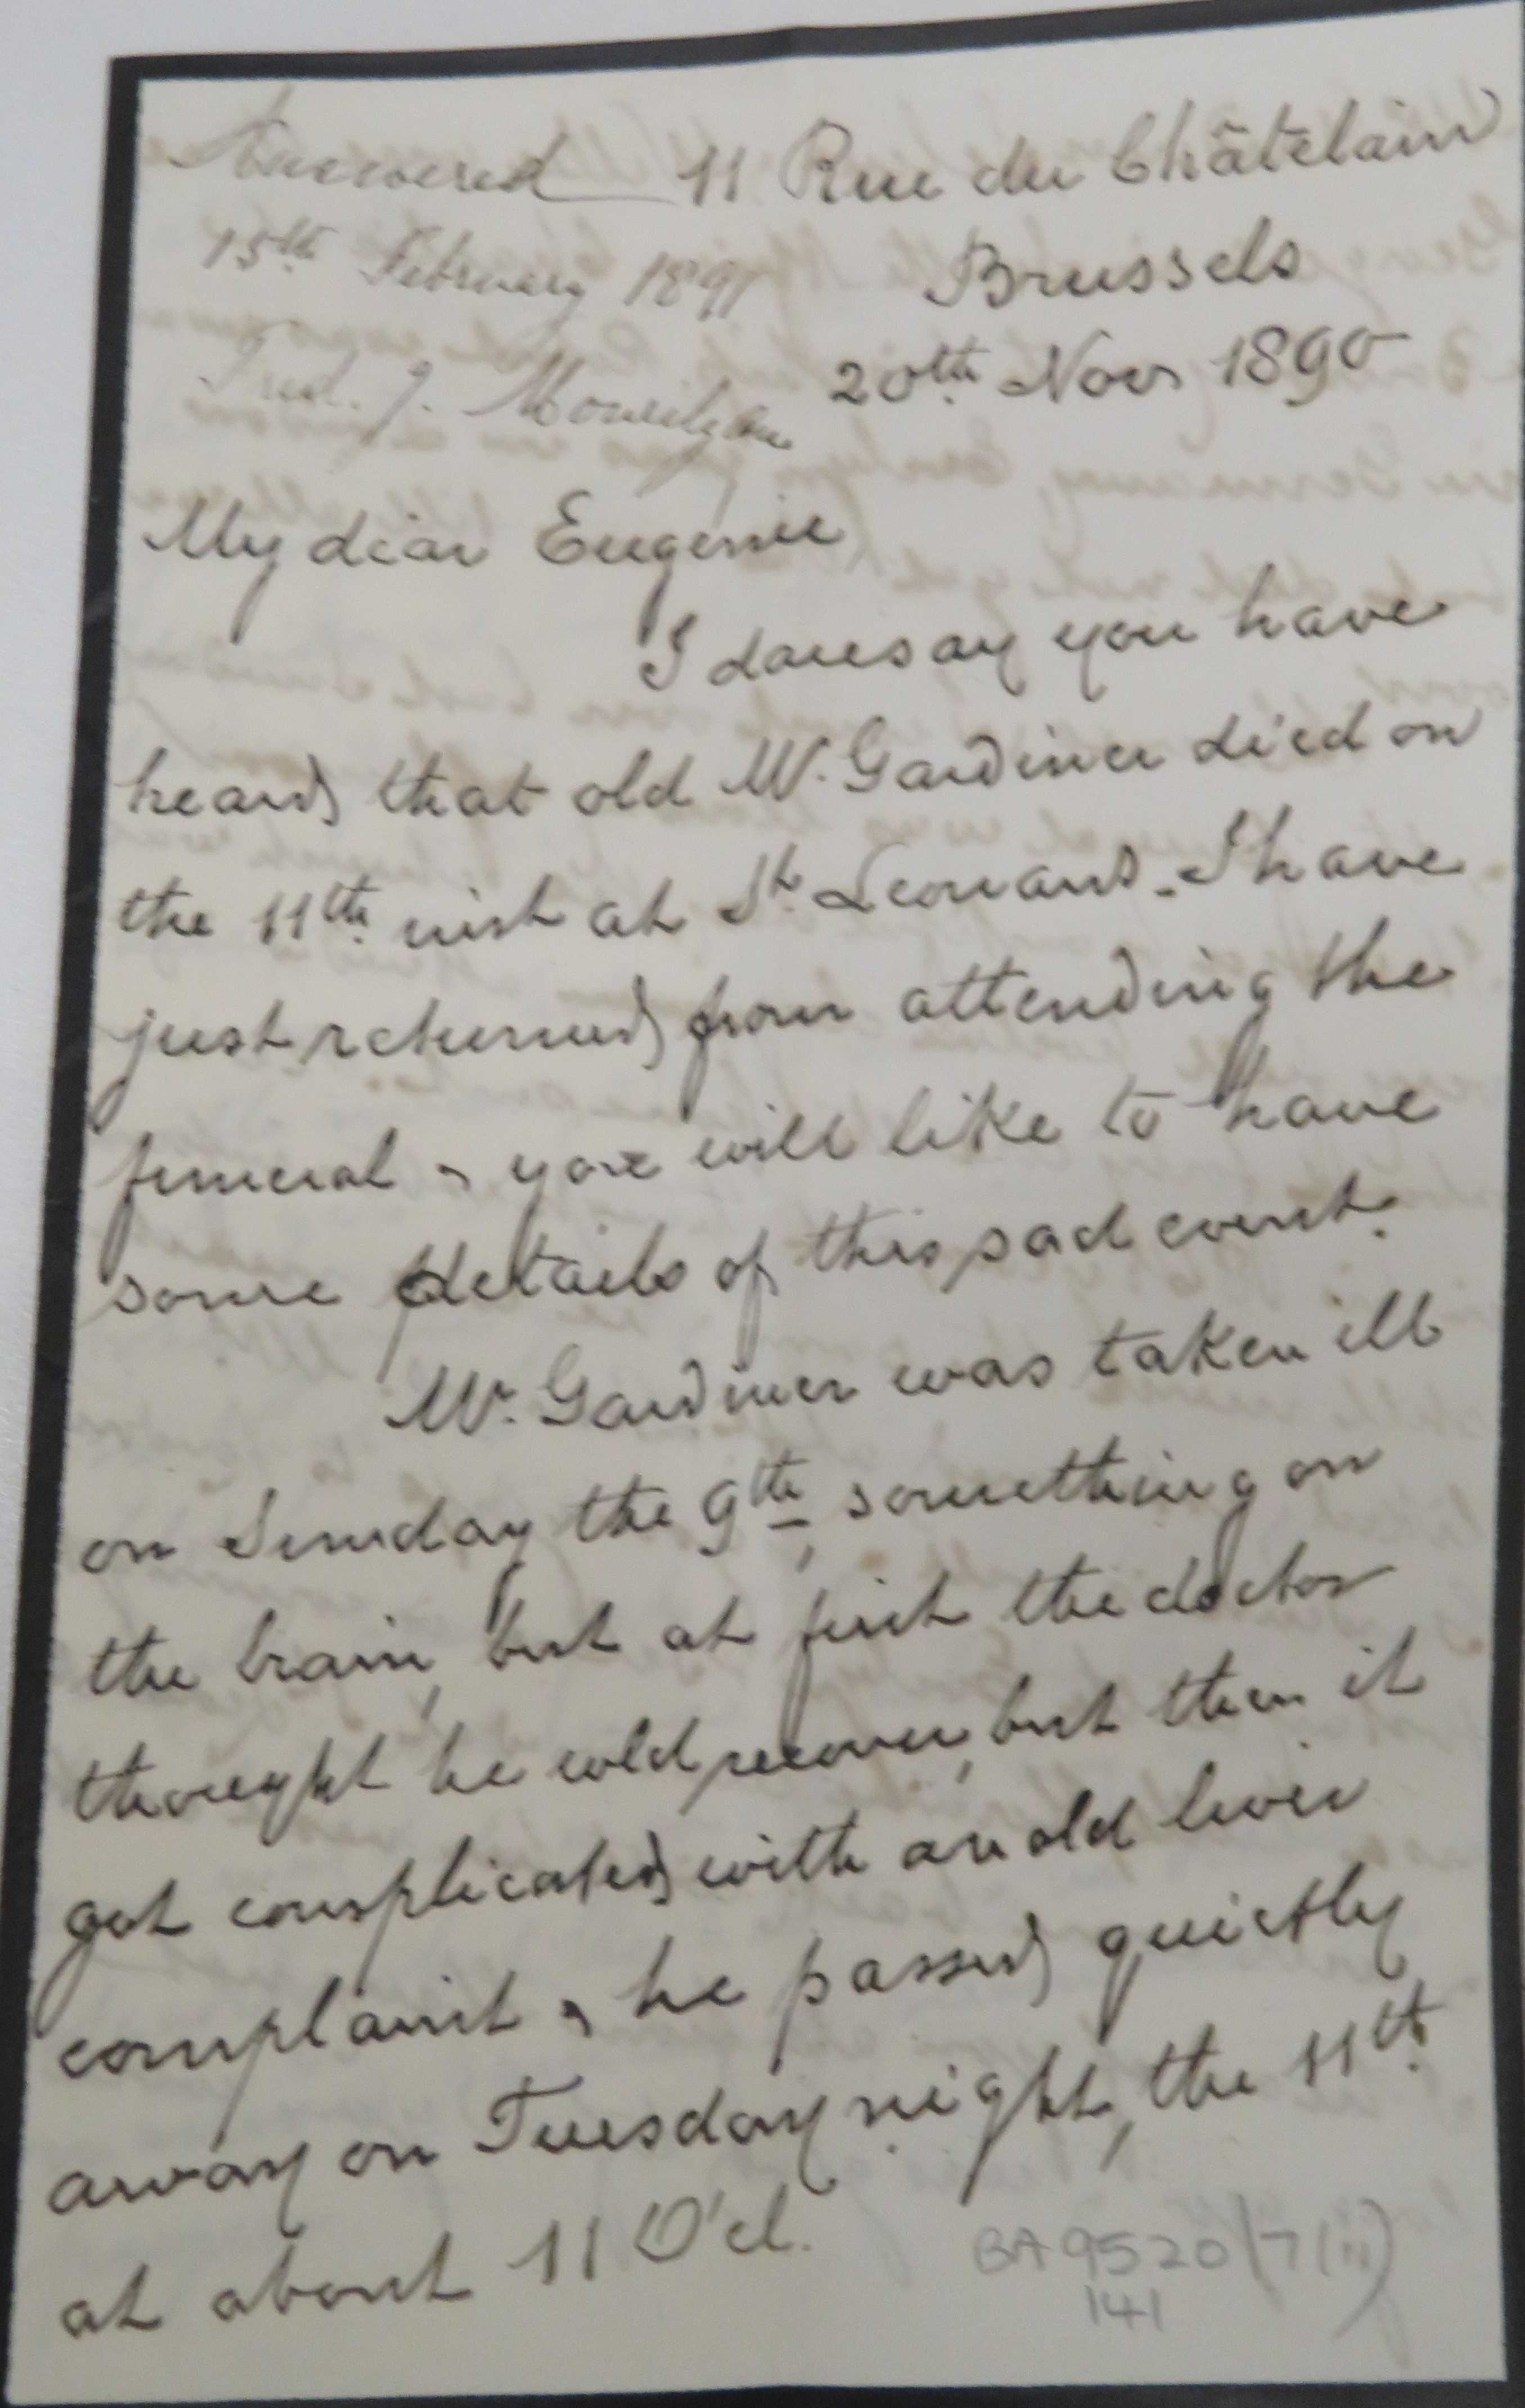 Answered 11 Rue du Châtelain
15th February 1891 Brussels
Fred. J. 20th Nov 1890
My dear Eugenie
I daresay you have
heard that old Mr. Gardiner died on
the 11th inst at St. Leonard. I have
just returned from attending the
funeral & you will like to have
some details of this sad event.
Mr. Gardiner was taken ill
on Sunday the 9th, something on
the brain, but at first the doctor
thought he cold recover, but then it
got complicated with an old liver
complaint & he passed quietly
away on Tuesday night, the 11th
at about 11 O'cl.
BA 9520/7(ii)
141